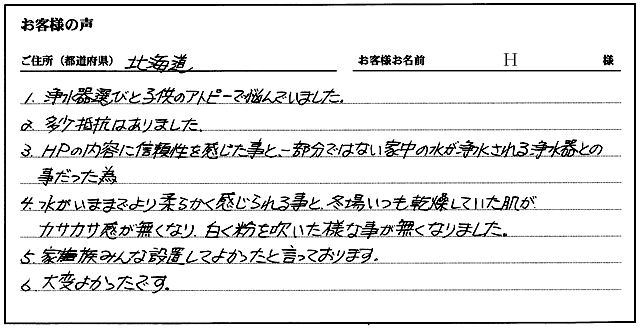 お客様の声
ご住所（都道府県） 北海道 お客様お名前 H 様
1. 浄水器選びと子供のアトピーで悩んでいました。
2. 多少抵抗はありました。
3. HPの内容に信頼性を感じた事と、一部分ではない家中の水が浄水される浄水器との
事だった為
4. 水がいままでより柔らかく感じられる事と、冬場いつも乾燥していた肌が
カサカサ感が無くなり、白く粉を吹いた様な事が無くなりました。
5. 家族みんな設置してよかったと言っております。
6. 大変よかったです。